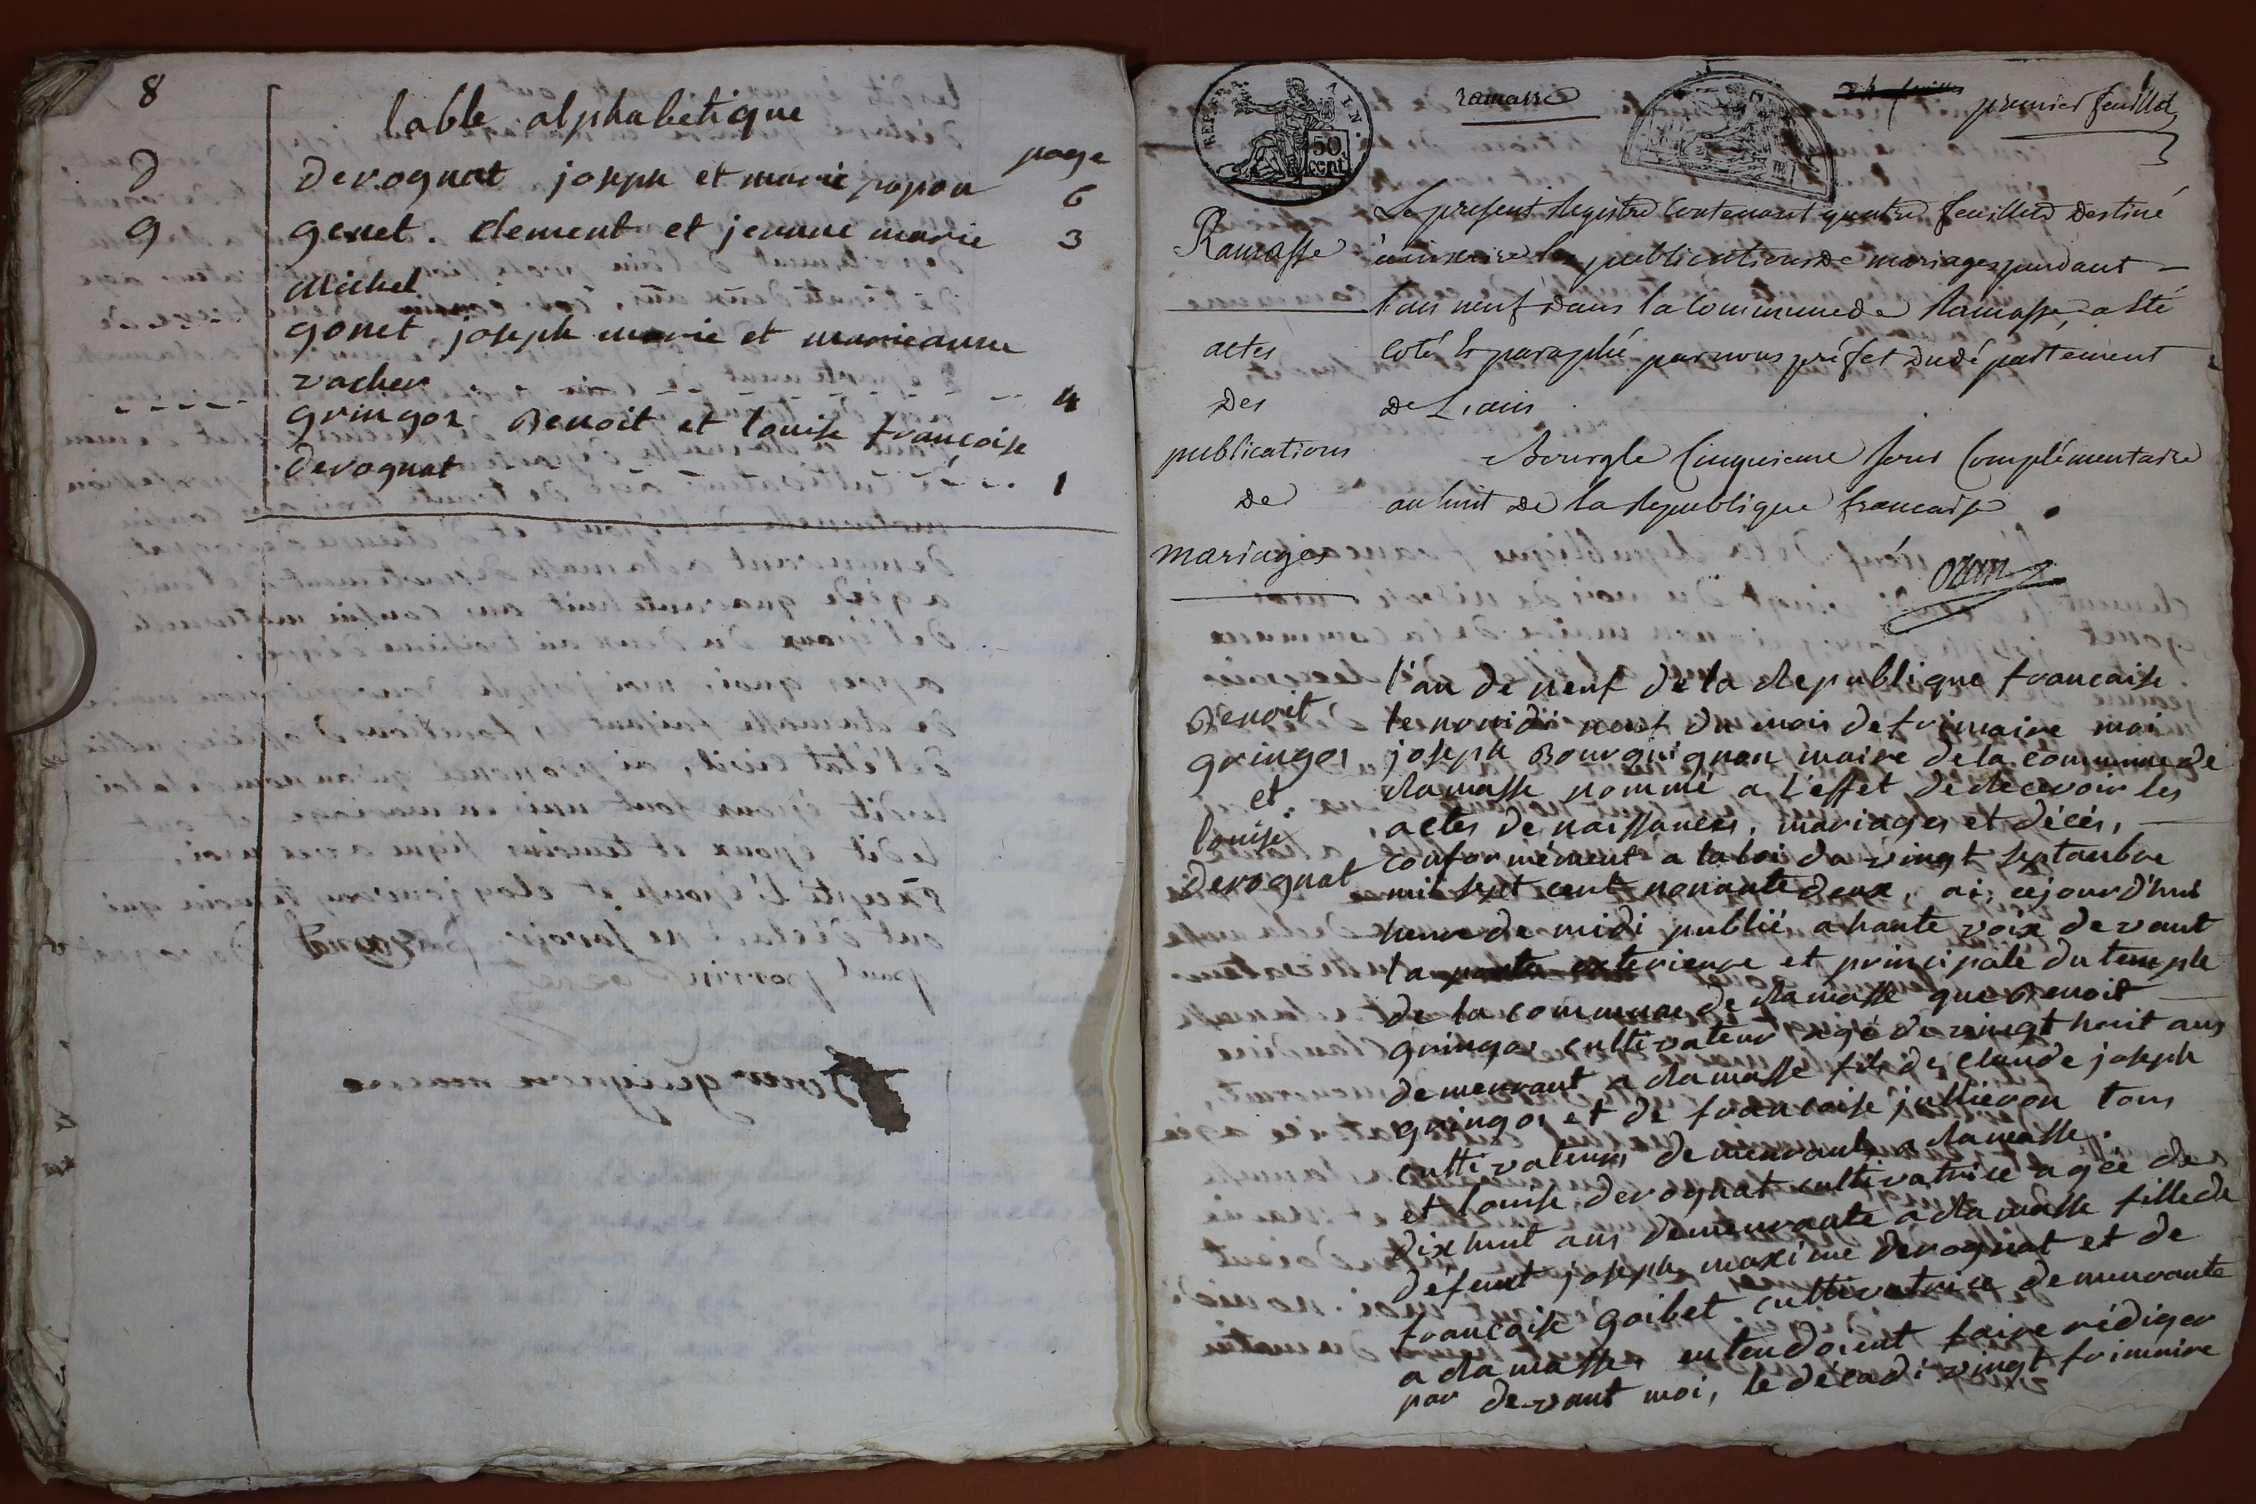 8
table alphabetique
page
d
derognat joseph et marie popon 6
g
genet. clement et jeanne marie 3
michel
gonet joseph marie et marieanne
vacher 4
gringoz Benoit et louise françoise
derognat 1
REPUB
AIN.
50
cent
ramasse
premier feuillet
Ramasse
actes
des
publications
de
mariages
Le present Registre Contenant quatre feuillets destiné
a inscrire les publications de mariages pendant
l'an neuf dans la Commune de Ramasse, a été
Coté & paraphé par nous préfet du département
de L'ain
Bourg le Cinquieme Jour Complémentaire
an huit de la Republique francaise
Ozun
Benoit
gringoz
et
louise
derognat
l'an de neuf de la Republique francaise
le nonidi neuf du mois de frimaire moi
joseph Bourguignon maire de la commune de
Ramasse nommé a l'effet de Recevoir les
actes de naissances, mariages et décés,
conformément a la loi du vingt septambre
mil sept cent nonante deux, ai, cejourd'hui
heure de midi publié a haute voix devant
la porte exterieure et principale du temple
de la commune de Ramasse que Benoit
gringoz cultivateur agé de vingt huit ans
demeurant a Ramasse fils de claude joseph
gringoz et de francoise jullieron tous
cultivateurs demeurants a Ramasse.
et louise derognat cultivatrice agée de
dix huit ans demeurante a Ramasse fille de
défeunt joseph maxime derognat et de
francoise goibet cultivatrice demeurante
a Ramasse, entendoient faire rédiger
par devant moi, le décadi vingt frimaire